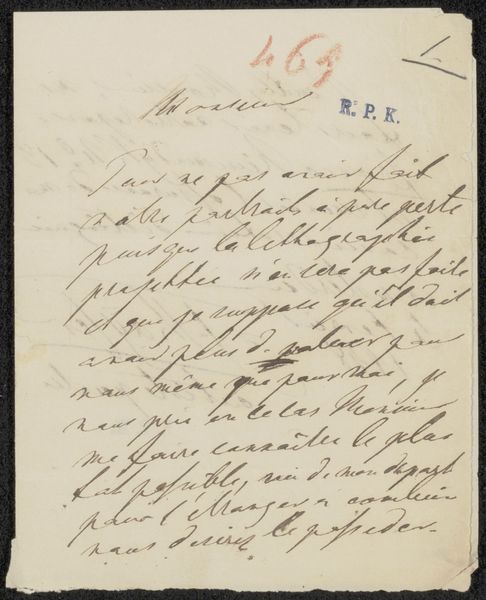 469
1.
R. P. K.
Monsieur
Pour ne pas avoir fait
votre portrait à pure perte
puisque la lithographie
projettée n'en sera pas faite
et que je suppose qu'il doit
avoir plus de valeur pour
vous même que pour moi, je
vous prie en ce cas Monsieur
me faire connaître le plus
tôt possible, vu de mon départ
pour l'étranger si combien
vous désirez le posséder.